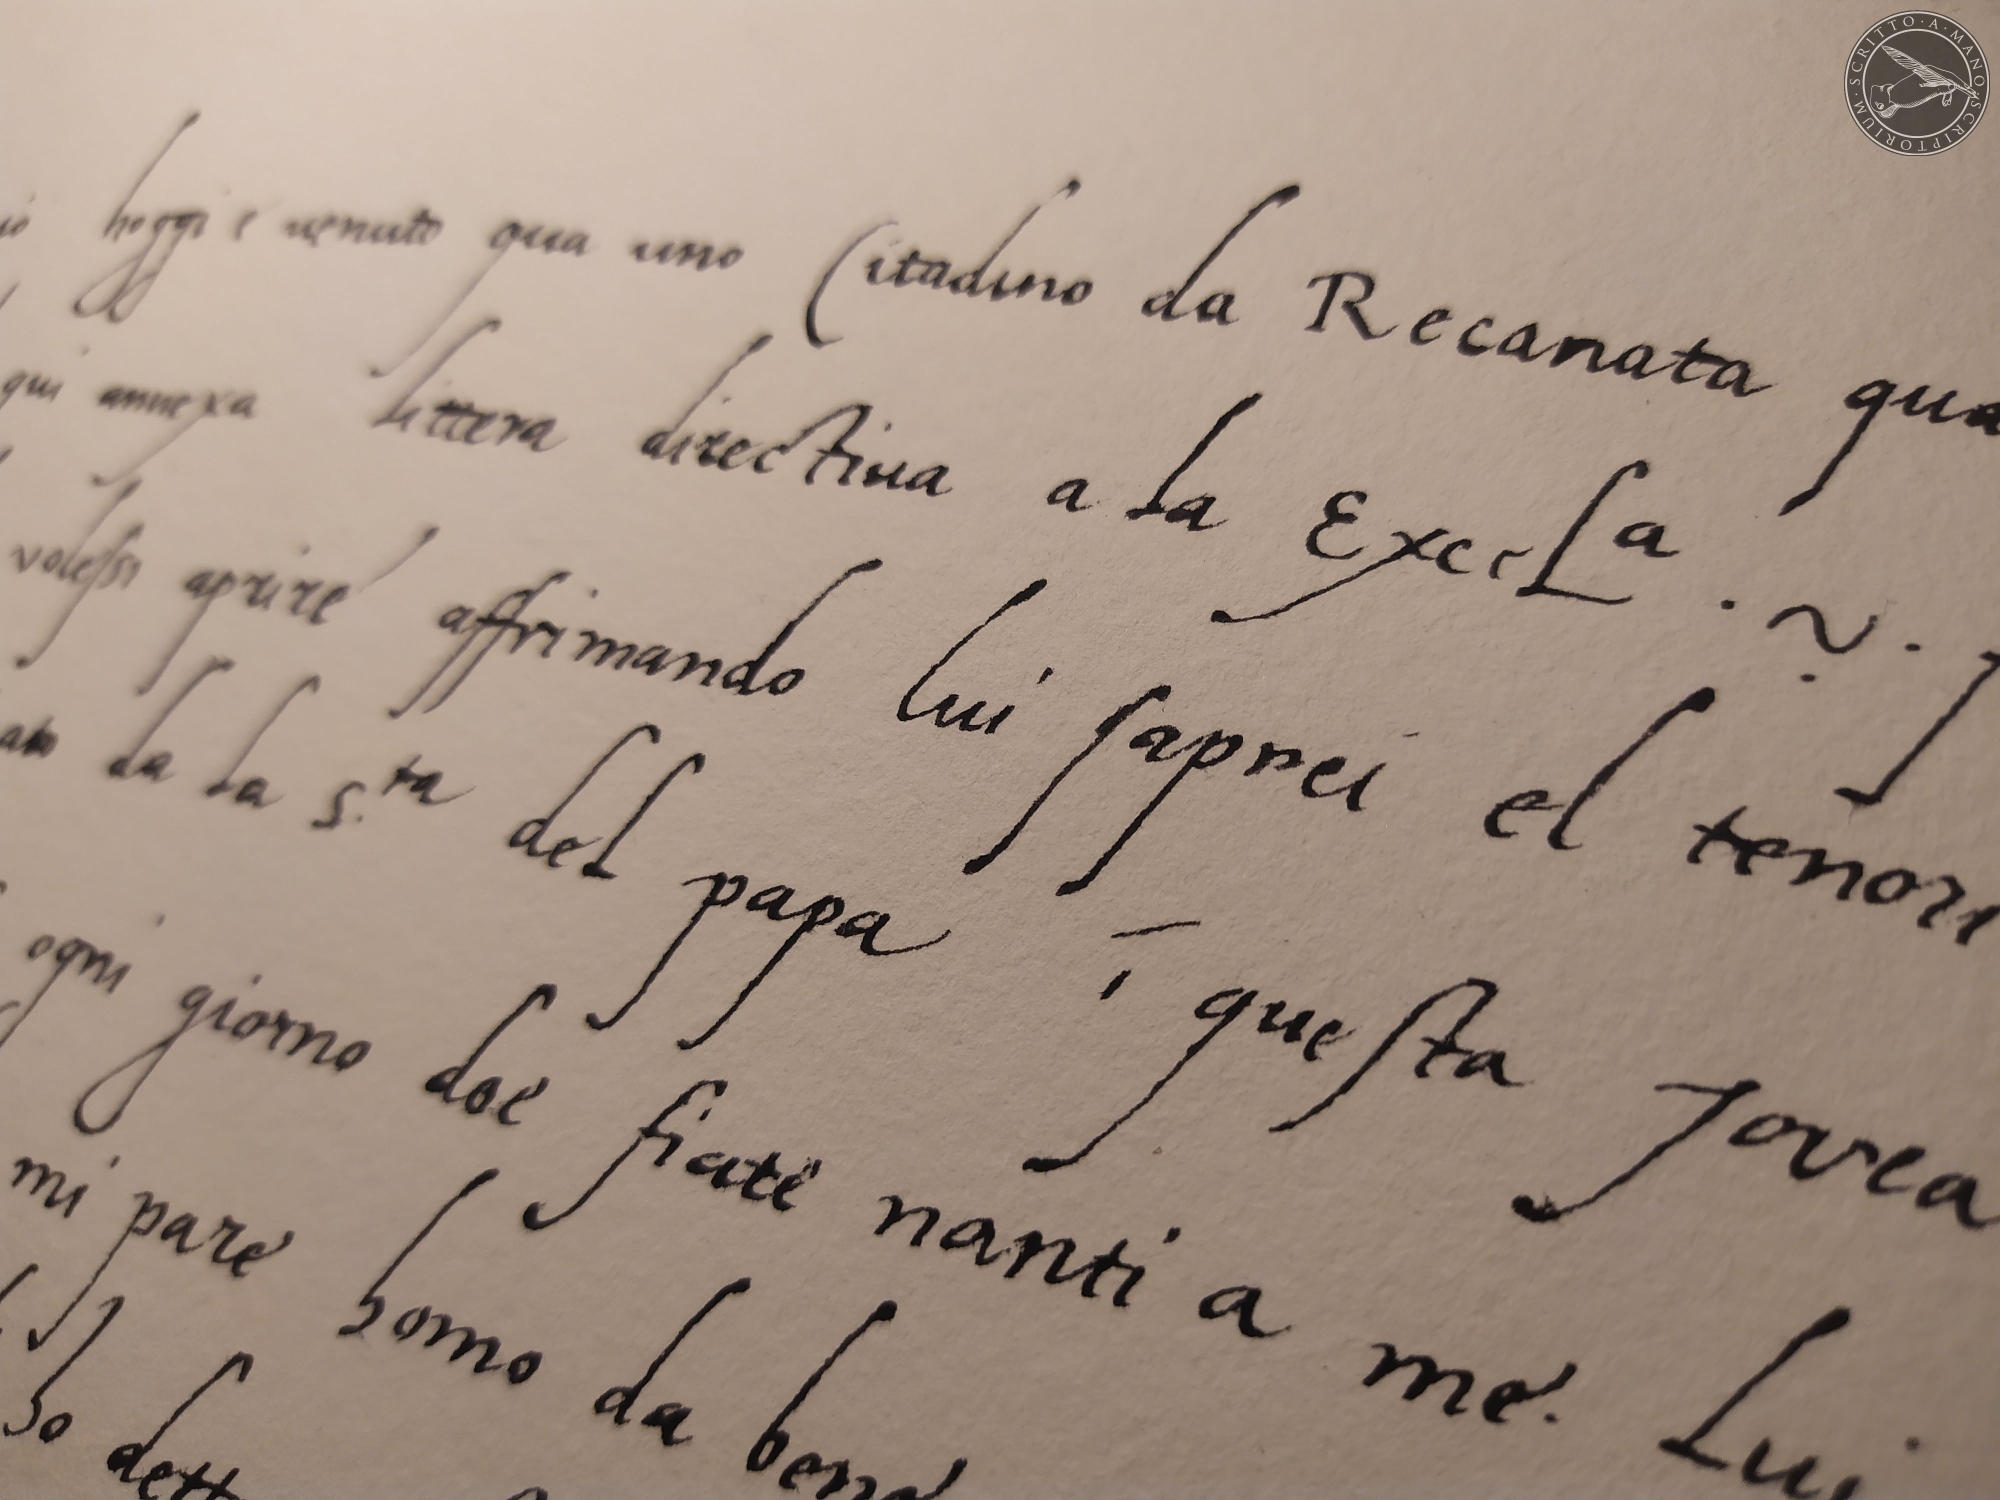 hoggi è venuto qua uno Citadino da Recanata qua
qui annexa littera directiua a la Excela . V .
volessi aprire affrimando lui saprei el tenori
da la S.ta del papa ī questa rovea
ogni giorno doe fiate nanti a me. Lui
mi pare homo da bene
ho dett
SCRITTO · A · MANO · SCRIPTORIUM